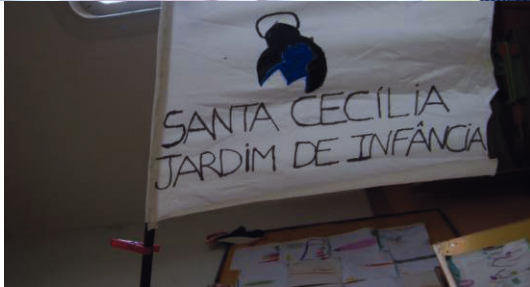 SANTA CECÍLIA
JARDIM DE INFÂNCIA